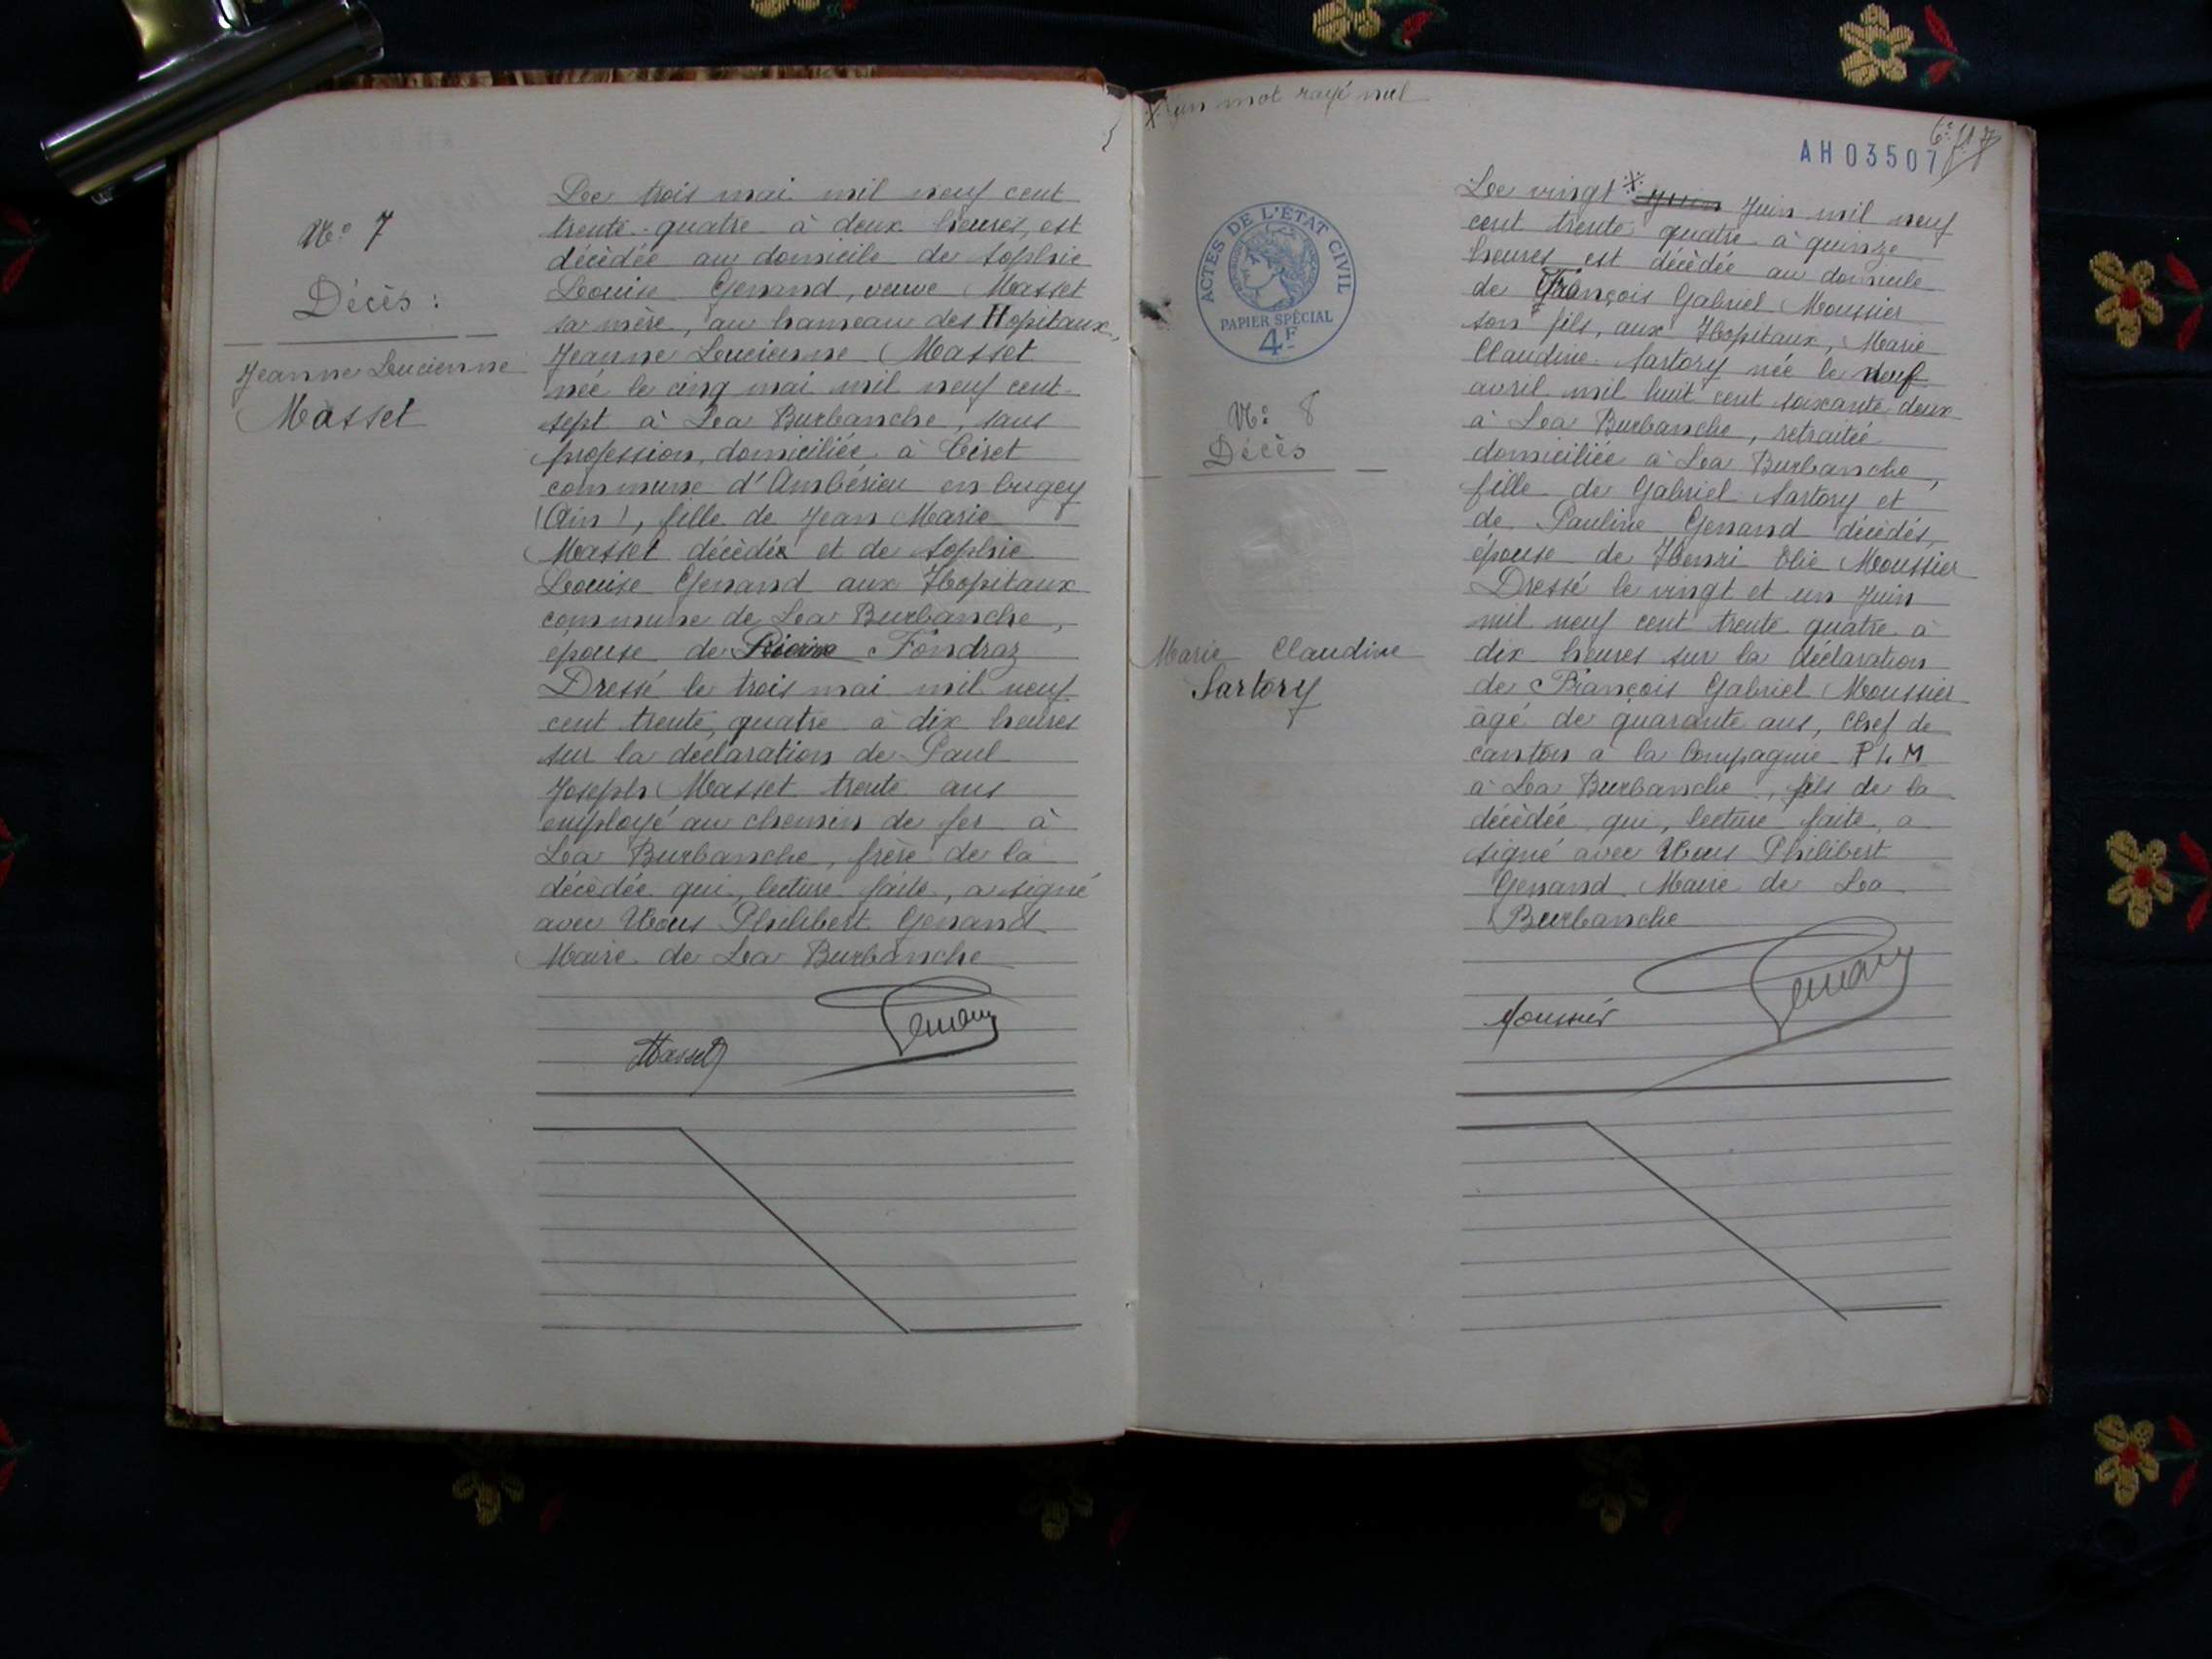 N° 7
Décès :
Jeanne Lucienne
Masset
Le trois mai mil neuf cent
trente quatre à deux heures, est
décédée au domicile de Sophie
Louise Genand, veuve Masset
sa mère, au hameau des Hopitaux,
Jeanne Lucienne Masset
née le cinq mai mil neuf cent
sept à La Burbanche, sans
profession, domiciliée à
commune d'Ambérieu en bugey
(Ain), fille de Jean Marie
Masset décédé et de Sophie
Louise Genand aux Hopitaux
commune de La Burbanche,
épouse de Pierre Fondraz
Dressé le trois mai mil neuf
cent trente quatre à dix heures
sur la déclaration de Paul
Joseph Masset trente ans
employé au chemin de fer à
La Burbanche, frère de la
décédée qui, lecture faite, a signé
avec Nous Philibert Genand
Maire de La Burbanche
Masset
Genand
* un mot rayé nul
AH03507
ACTES DE L'ÉTAT CIVIL
PAPIER SPÉCIAL
4F
N° 8
Décès
Marie Claudine
Sartory
Le vingt * Juin Juin mil neuf
cent trente quatre à quinze
heures est décédée au domicile
de François Gabriel Moussier
son fils, aux Hopitaux, Marie
Claudine Sartory née le neuf
avril mil huit cent soixante deux
à La Burbanche, retraitée
domiciliée à La Burbanche,
fille de Gabriel Sartory et
de Pauline Genand décédés,
épouse de Henri Elie Moussier
Dressé le vingt et un Juin
mil neuf cent trente quatre à
dix heures sur la déclaration
de François Gabriel Moussier
âgé de quarante ans, Chef de
canton à la Compagnie P L M
à La Burbanche, fils de la
décédée qui, lecture faite, a
signé avec Nous Philibert
Genand Maire de La
Burbanche
Moussier
Genand